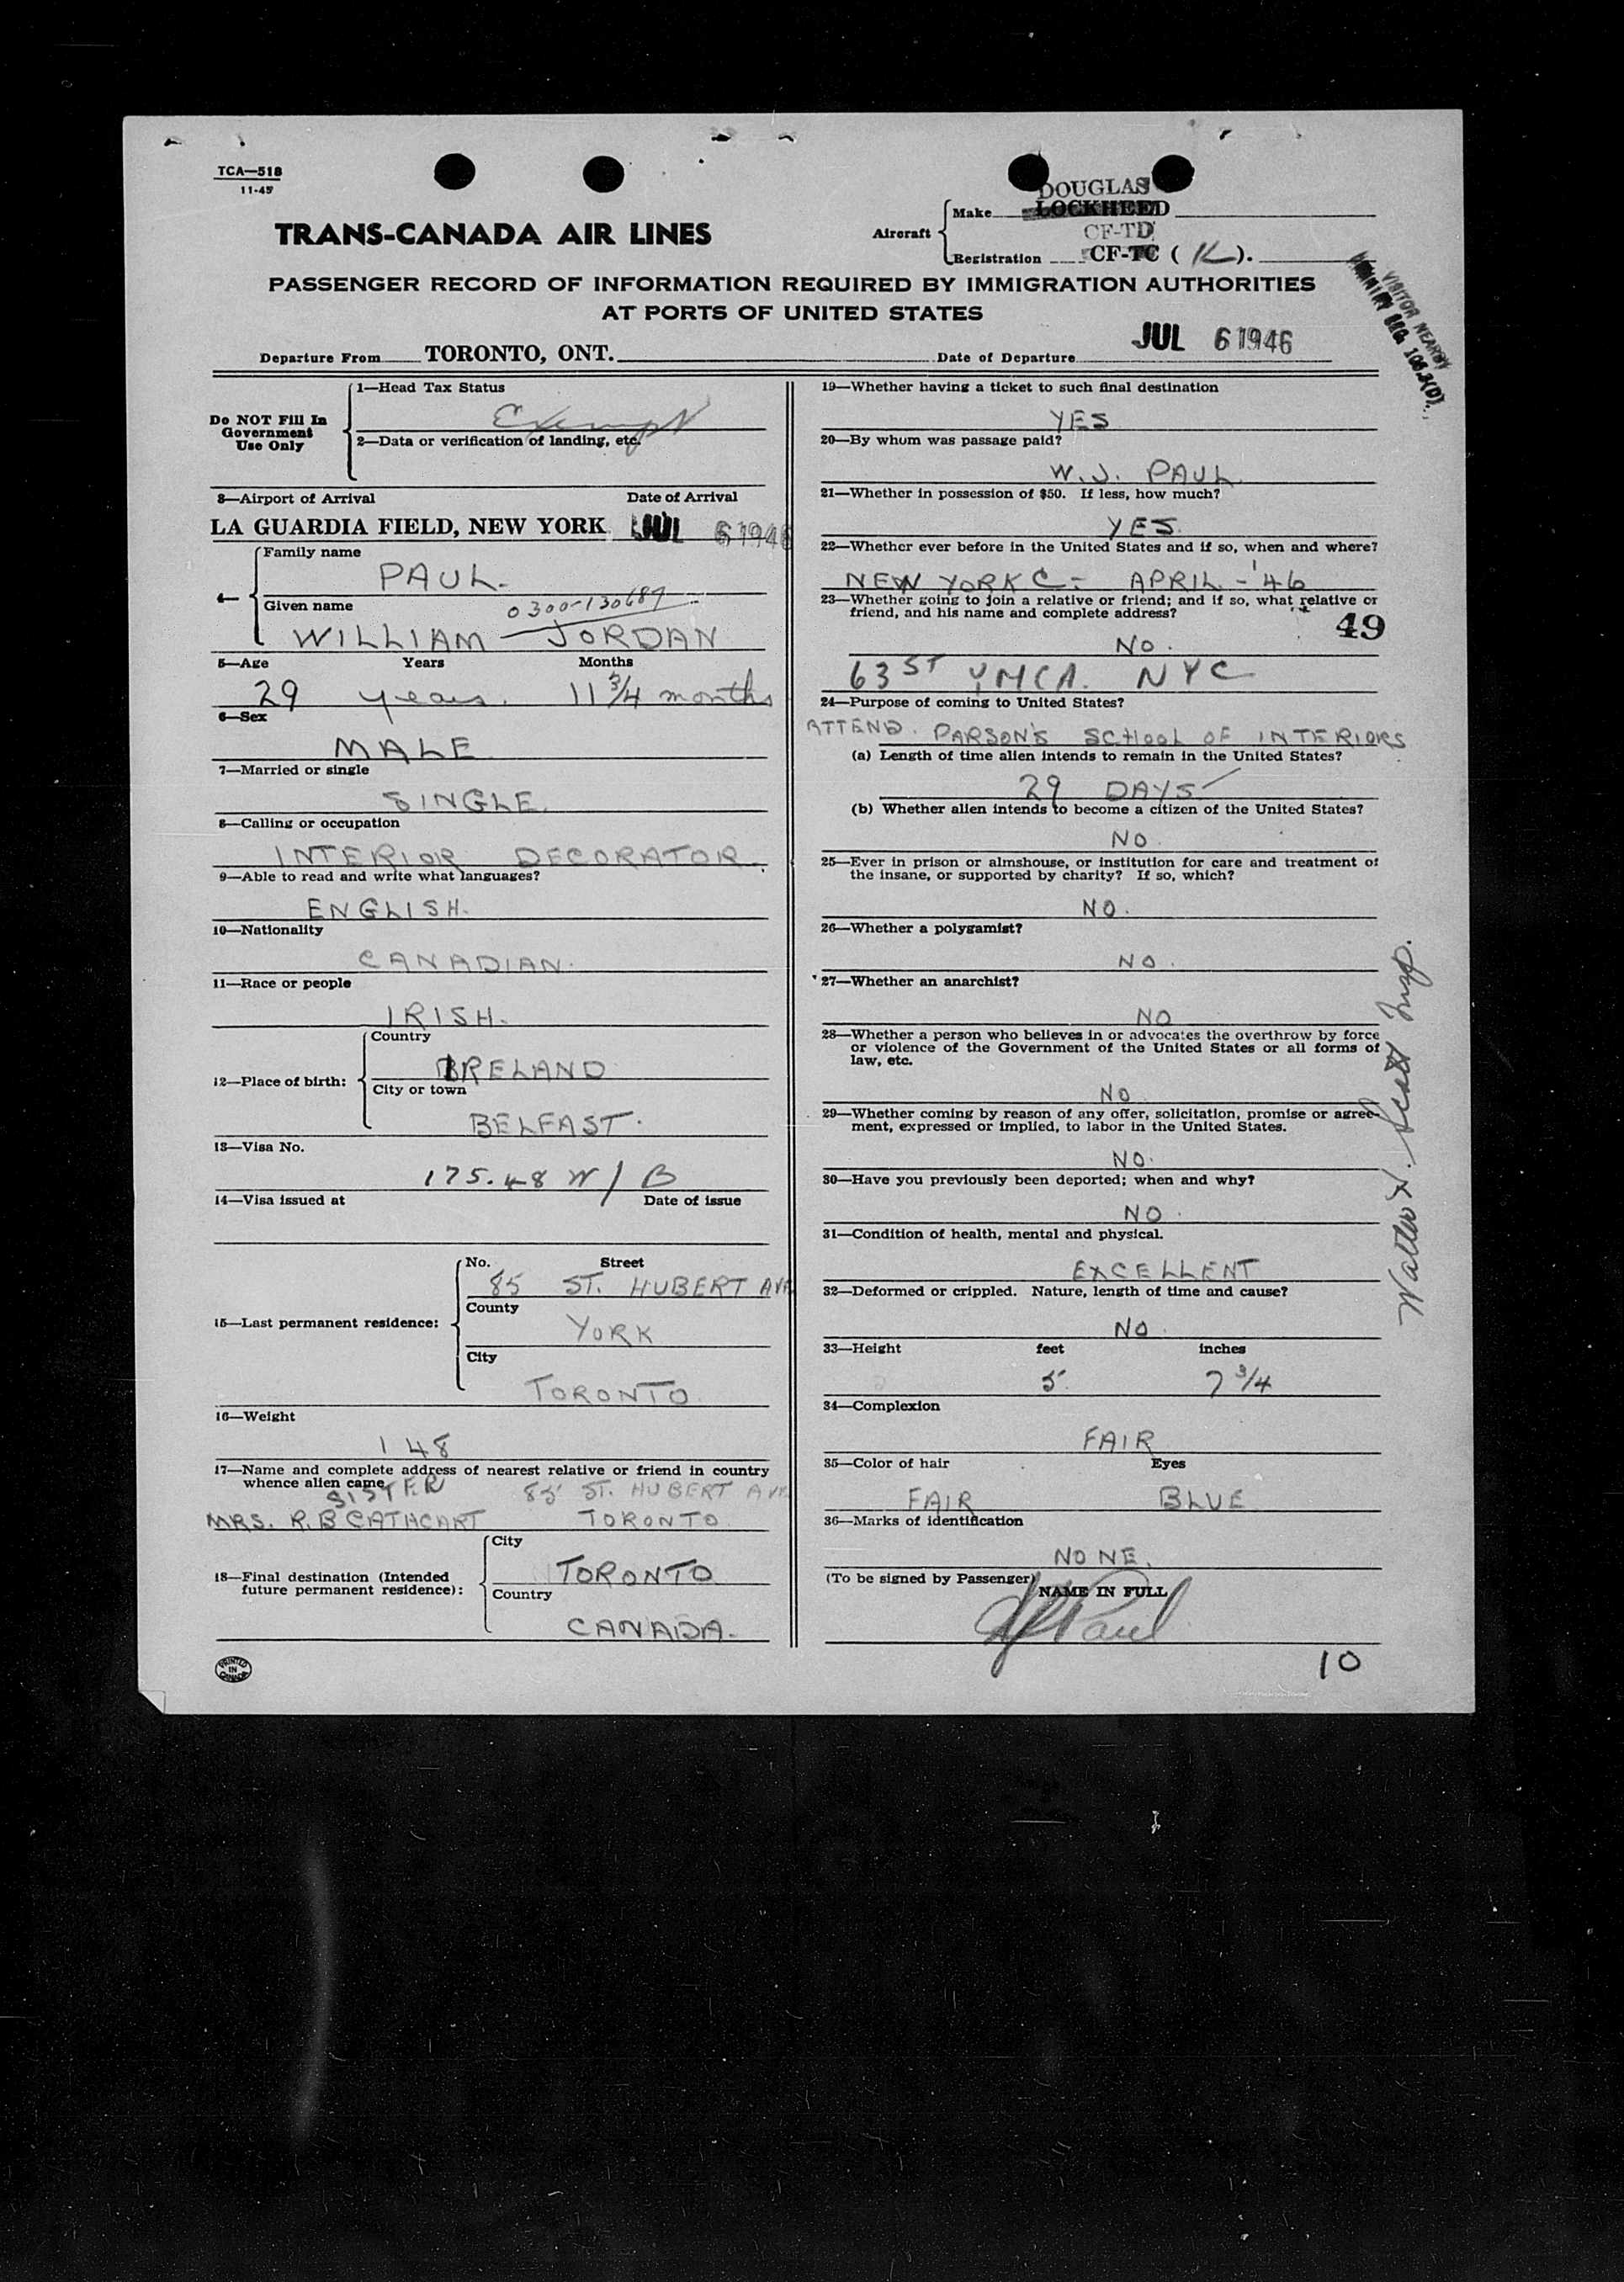 TCA—518
11-45
TRANS-CANADA AIR LINES
DOUGLAS
Aircraft
Make LOCKHEED
CF-TD
Registration CF-TC ( K ).
PASSENGER RECORD OF INFORMATION REQUIRED BY IMMIGRATION AUTHORITIES
AT PORTS OF UNITED STATES
VISITOR NEARBY
Departure From TORONTO, ONT. Date of Departure JUL 6 1946
Do NOT Fill In
Government
Use Only
1—Head Tax Status
Exempt
2—Data or verification of landing, etc.
3—Airport of Arrival Date of Arrival
LA GUARDIA FIELD, NEW YORK JUL 6 1946
4—
Family name
PAUL.
Given name 0300-130687
WILLIAM JORDAN
5—Age Years Months
29 years. 11 3/4 months
6—Sex
MALE
7—Married or single
SINGLE.
8—Calling or occupation
INTERIOR DECORATOR.
9—Able to read and write what languages?
ENGLISH.
10—Nationality
CANADIAN.
11—Race or people
IRISH.
12—Place of birth:
Country
IRELAND
City or town
BELFAST.
13—Visa No.
175.48 W/B
14—Visa issued at Date of issue
15—Last permanent residence:
No. Street
85 ST. HUBERT AVE
County
YORK
City
TORONTO.
16—Weight
148
17—Name and complete address of nearest relative or friend in country
whence alien came
SISTER 85 ST. HUBERT AVE
MRS. R.B CATHCART TORONTO.
18—Final destination (Intended
future permanent residence):
City
TORONTO
Country
CANADA.
PRINTED
IN
CANADA
19—Whether having a ticket to such final destination
YES
20—By whom was passage paid?
W.J. PAUL.
21—Whether in possession of $50. If less, how much?
YES.
22—Whether ever before in the United States and if so, when and where?
NEW YORK C- APRIL - '46
23—Whether going to join a relative or friend; and if so, what relative or
friend, and his name and complete address?
49
NO.
63 ST YMCA. NYC
24—Purpose of coming to United States?
ATTEND. PARSON'S SCHOOL OF INTERIORS
(a) Length of time alien intends to remain in the United States?
29 DAYS
(b) Whether alien intends to become a citizen of the United States?
NO.
25—Ever in prison or almshouse, or institution for care and treatment of
the insane, or supported by charity? If so, which?
NO.
26—Whether a polygamist?
NO.
27—Whether an anarchist?
NO
28—Whether a person who believes in or advocates the overthrow by force
or violence of the Government of the United States or all forms of
law, etc.
NO
29—Whether coming by reason of any offer, solicitation, promise or agree-
ment, expressed or implied, to labor in the United States.
NO.
30—Have you previously been deported; when and why?
NO.
31—Condition of health, mental and physical.
EXCELLENT
32—Deformed or crippled. Nature, length of time and cause?
NO.
33—Height feet inches
5 7 3/4
34—Complexion
FAIR
35—Color of hair Eyes
FAIR BLUE
36—Marks of identification
NONE.
(To be signed by Passenger) NAME IN FULL
WJ Paul
10
Walter N. Scott Insp.